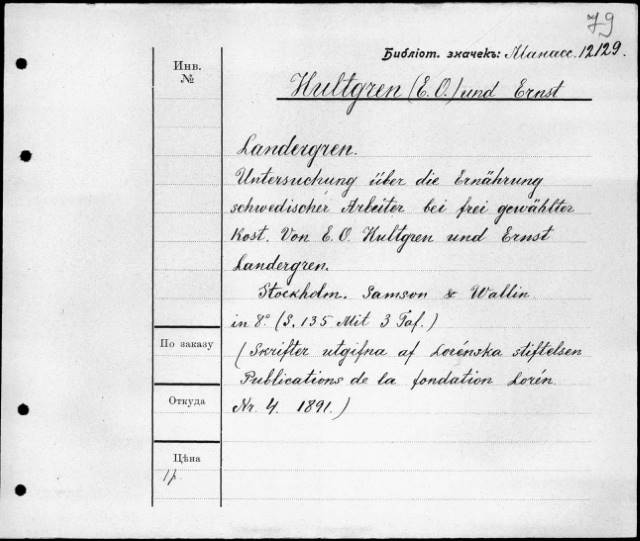 79
Библіот. значекъ: Манасс. 12129.
Инв.
№
Hultgren (E. O.) und Ernst
Landergren.
Untersuchung über die Ernährung
schwedischer Arbeiter bei frei gewählter
Kost. Von E. O. Hultgren und Ernst
Landergren.
Stockholm. Samson & Wallin.
in 8° (S. 135 Mit 3 Taf.)
По заказу
(Skrifter utgifna af Lorénska stiftelsen
Publications de la fondation Lorén.
Откуда
Nr. 4. 1891.)
Цѣна
1р.